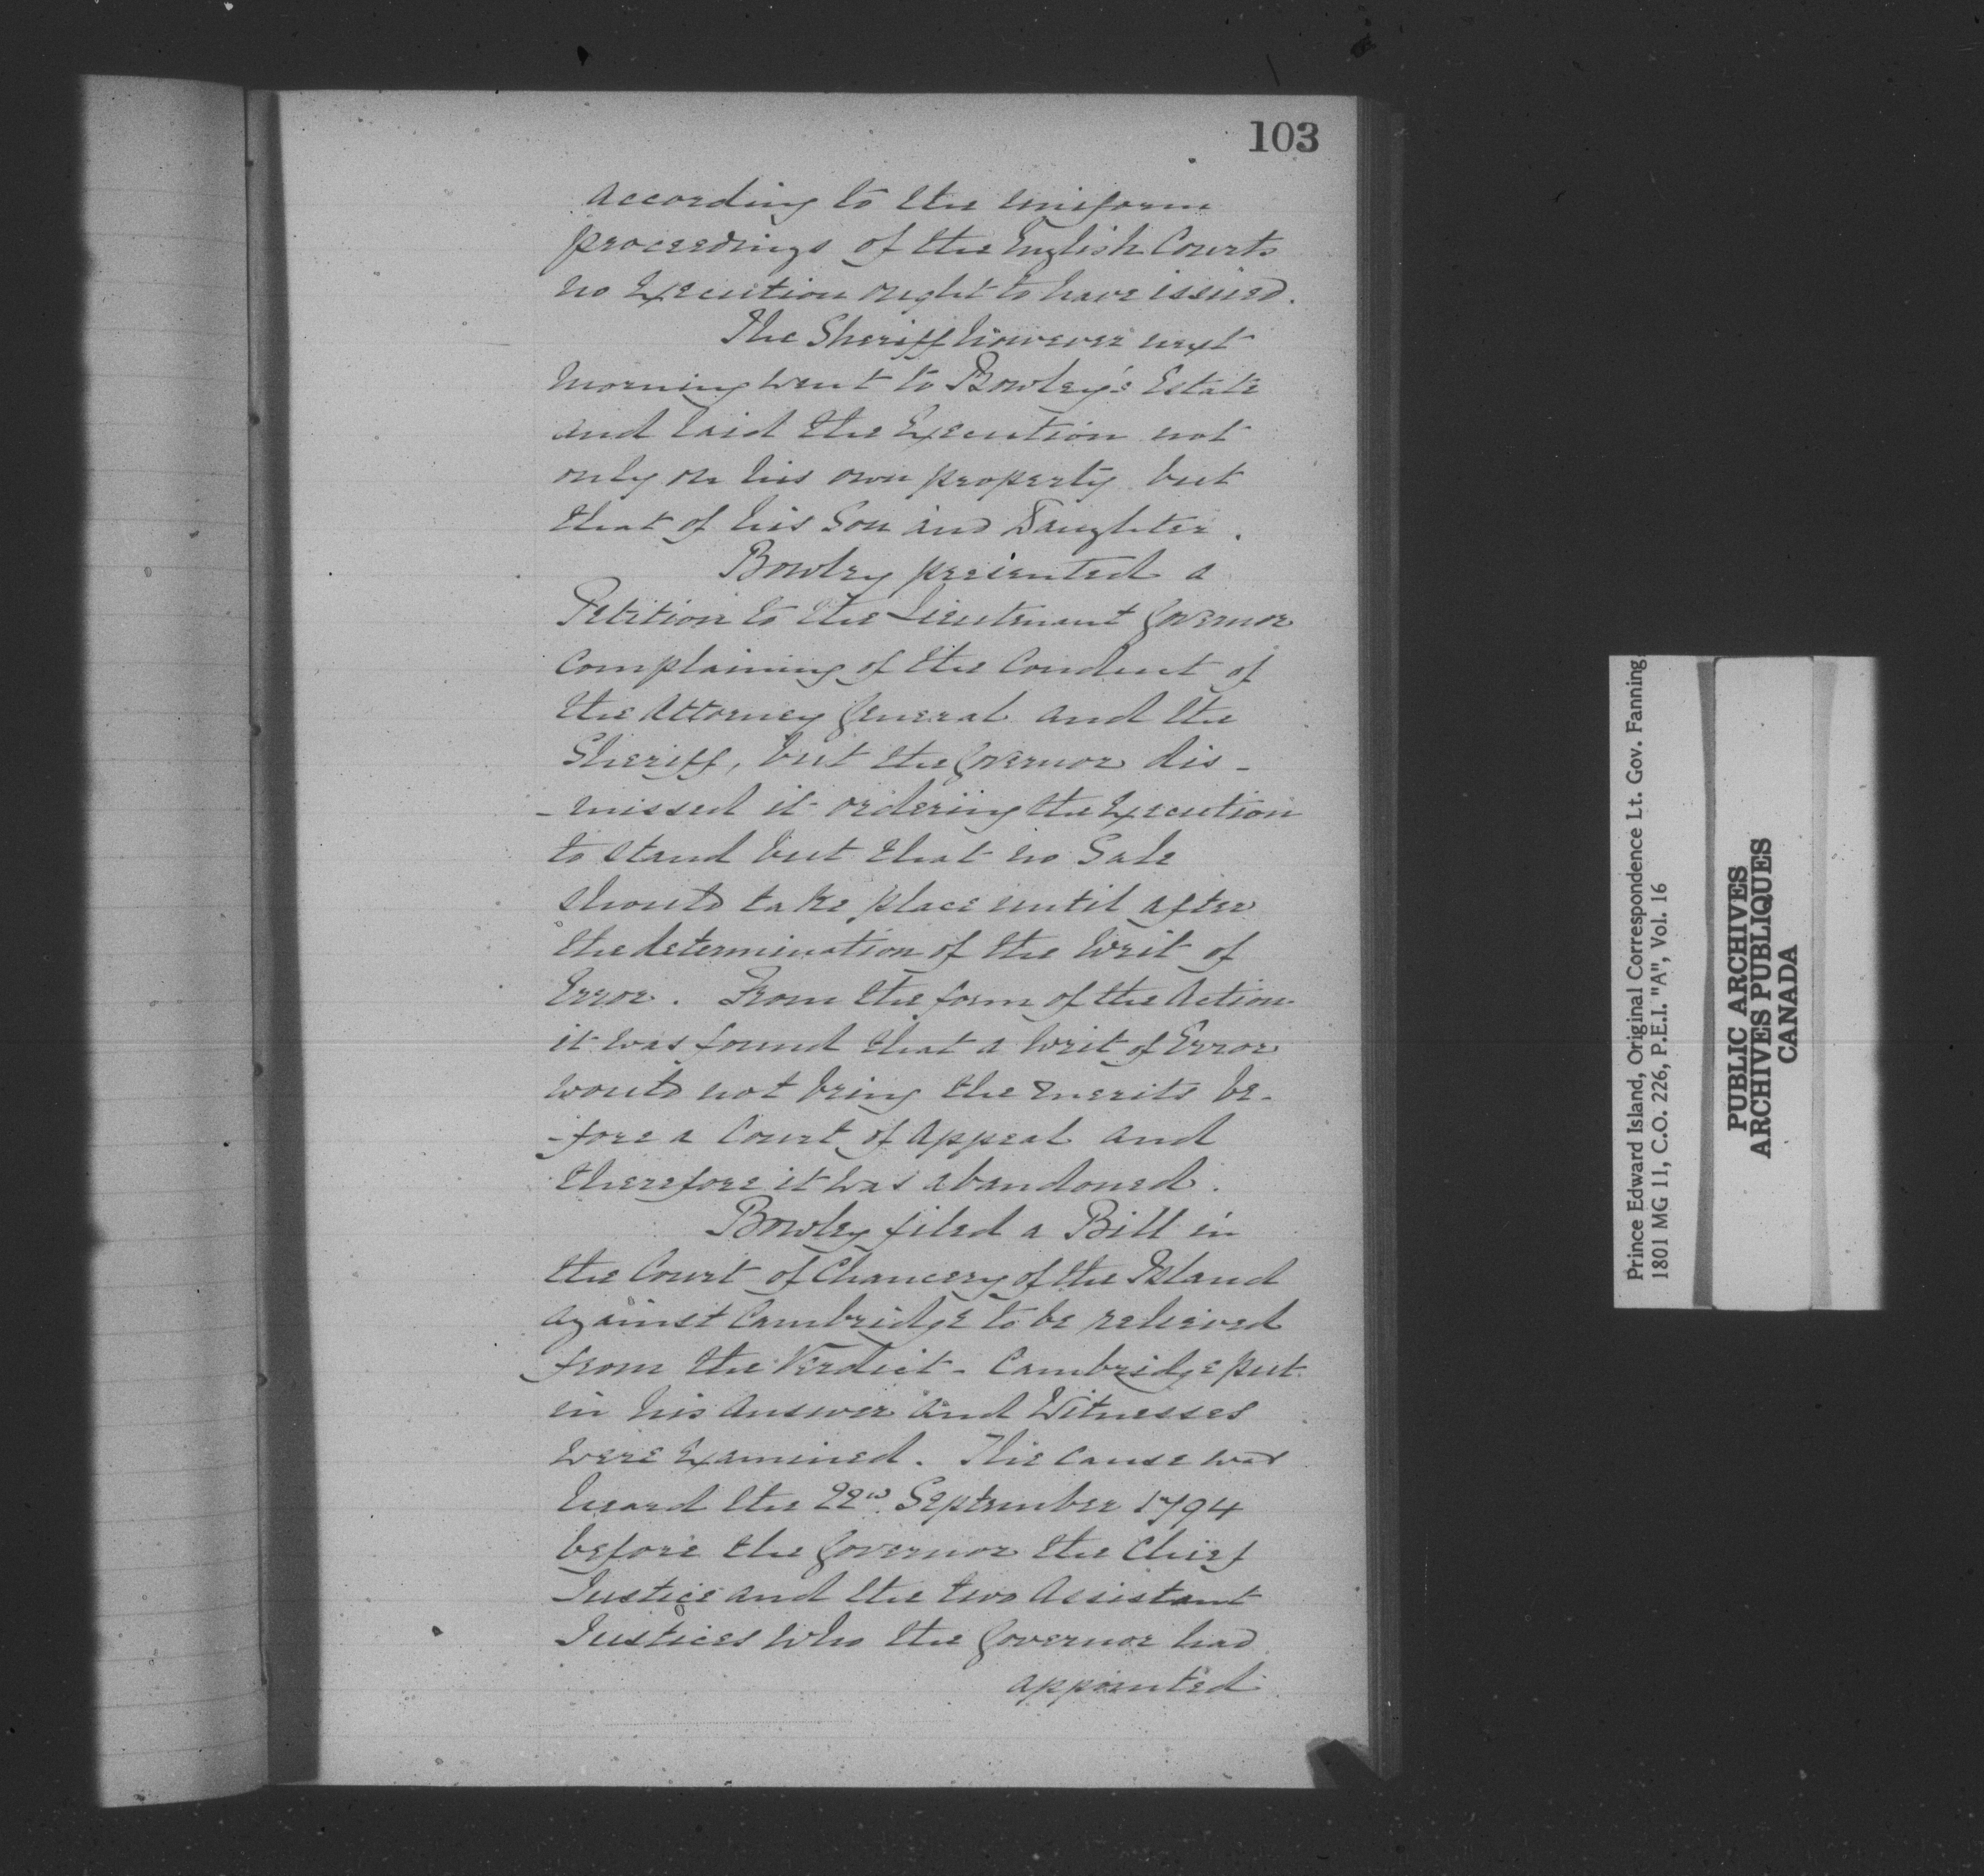 103
according to the uniform
proceedings of the English Courts
no Execution ought to have issued.
The Sheriff however next
morning went to Bowley's Estate
and laid the Execution not
only on his own property but
that of his Son and Daughter.
Bowley presented a
Petition to the Lieutenant Governor
complaining of the Conduct of
the Attorney General and the
Sheriff, but the Governor dis-
-missed it ordering the Execution
to stand but that no Sale
should take place until after
the determination of the Writ of
Error. From the form of the Action
it was found that a Writ of Error
would not bring the merits be-
-fore a Court of Appeal and
therefore it was abandoned.
Bowley filed a Bill in
the Court of Chancery of the Island
against Cambridge to be relieved
from the Verdict - Cambridge put
in his Answer and Witnesses
were examined. The cause was
heard the 22d. September 1794
before the Governor the Chief
Justice and the two Assistant
Justices who the Governor had
appointed
Prince Edward Island, Original Correspondence Lt. Gov. Fanning
1801 MG 11, C.O. 226, P.E.I. "A", Vol. 16
PUBLIC ARCHIVES
ARCHIVES PUBLIQUES
CANADA